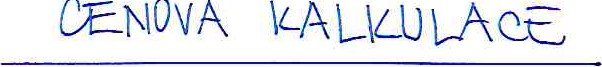 CENOVA KALKULACE